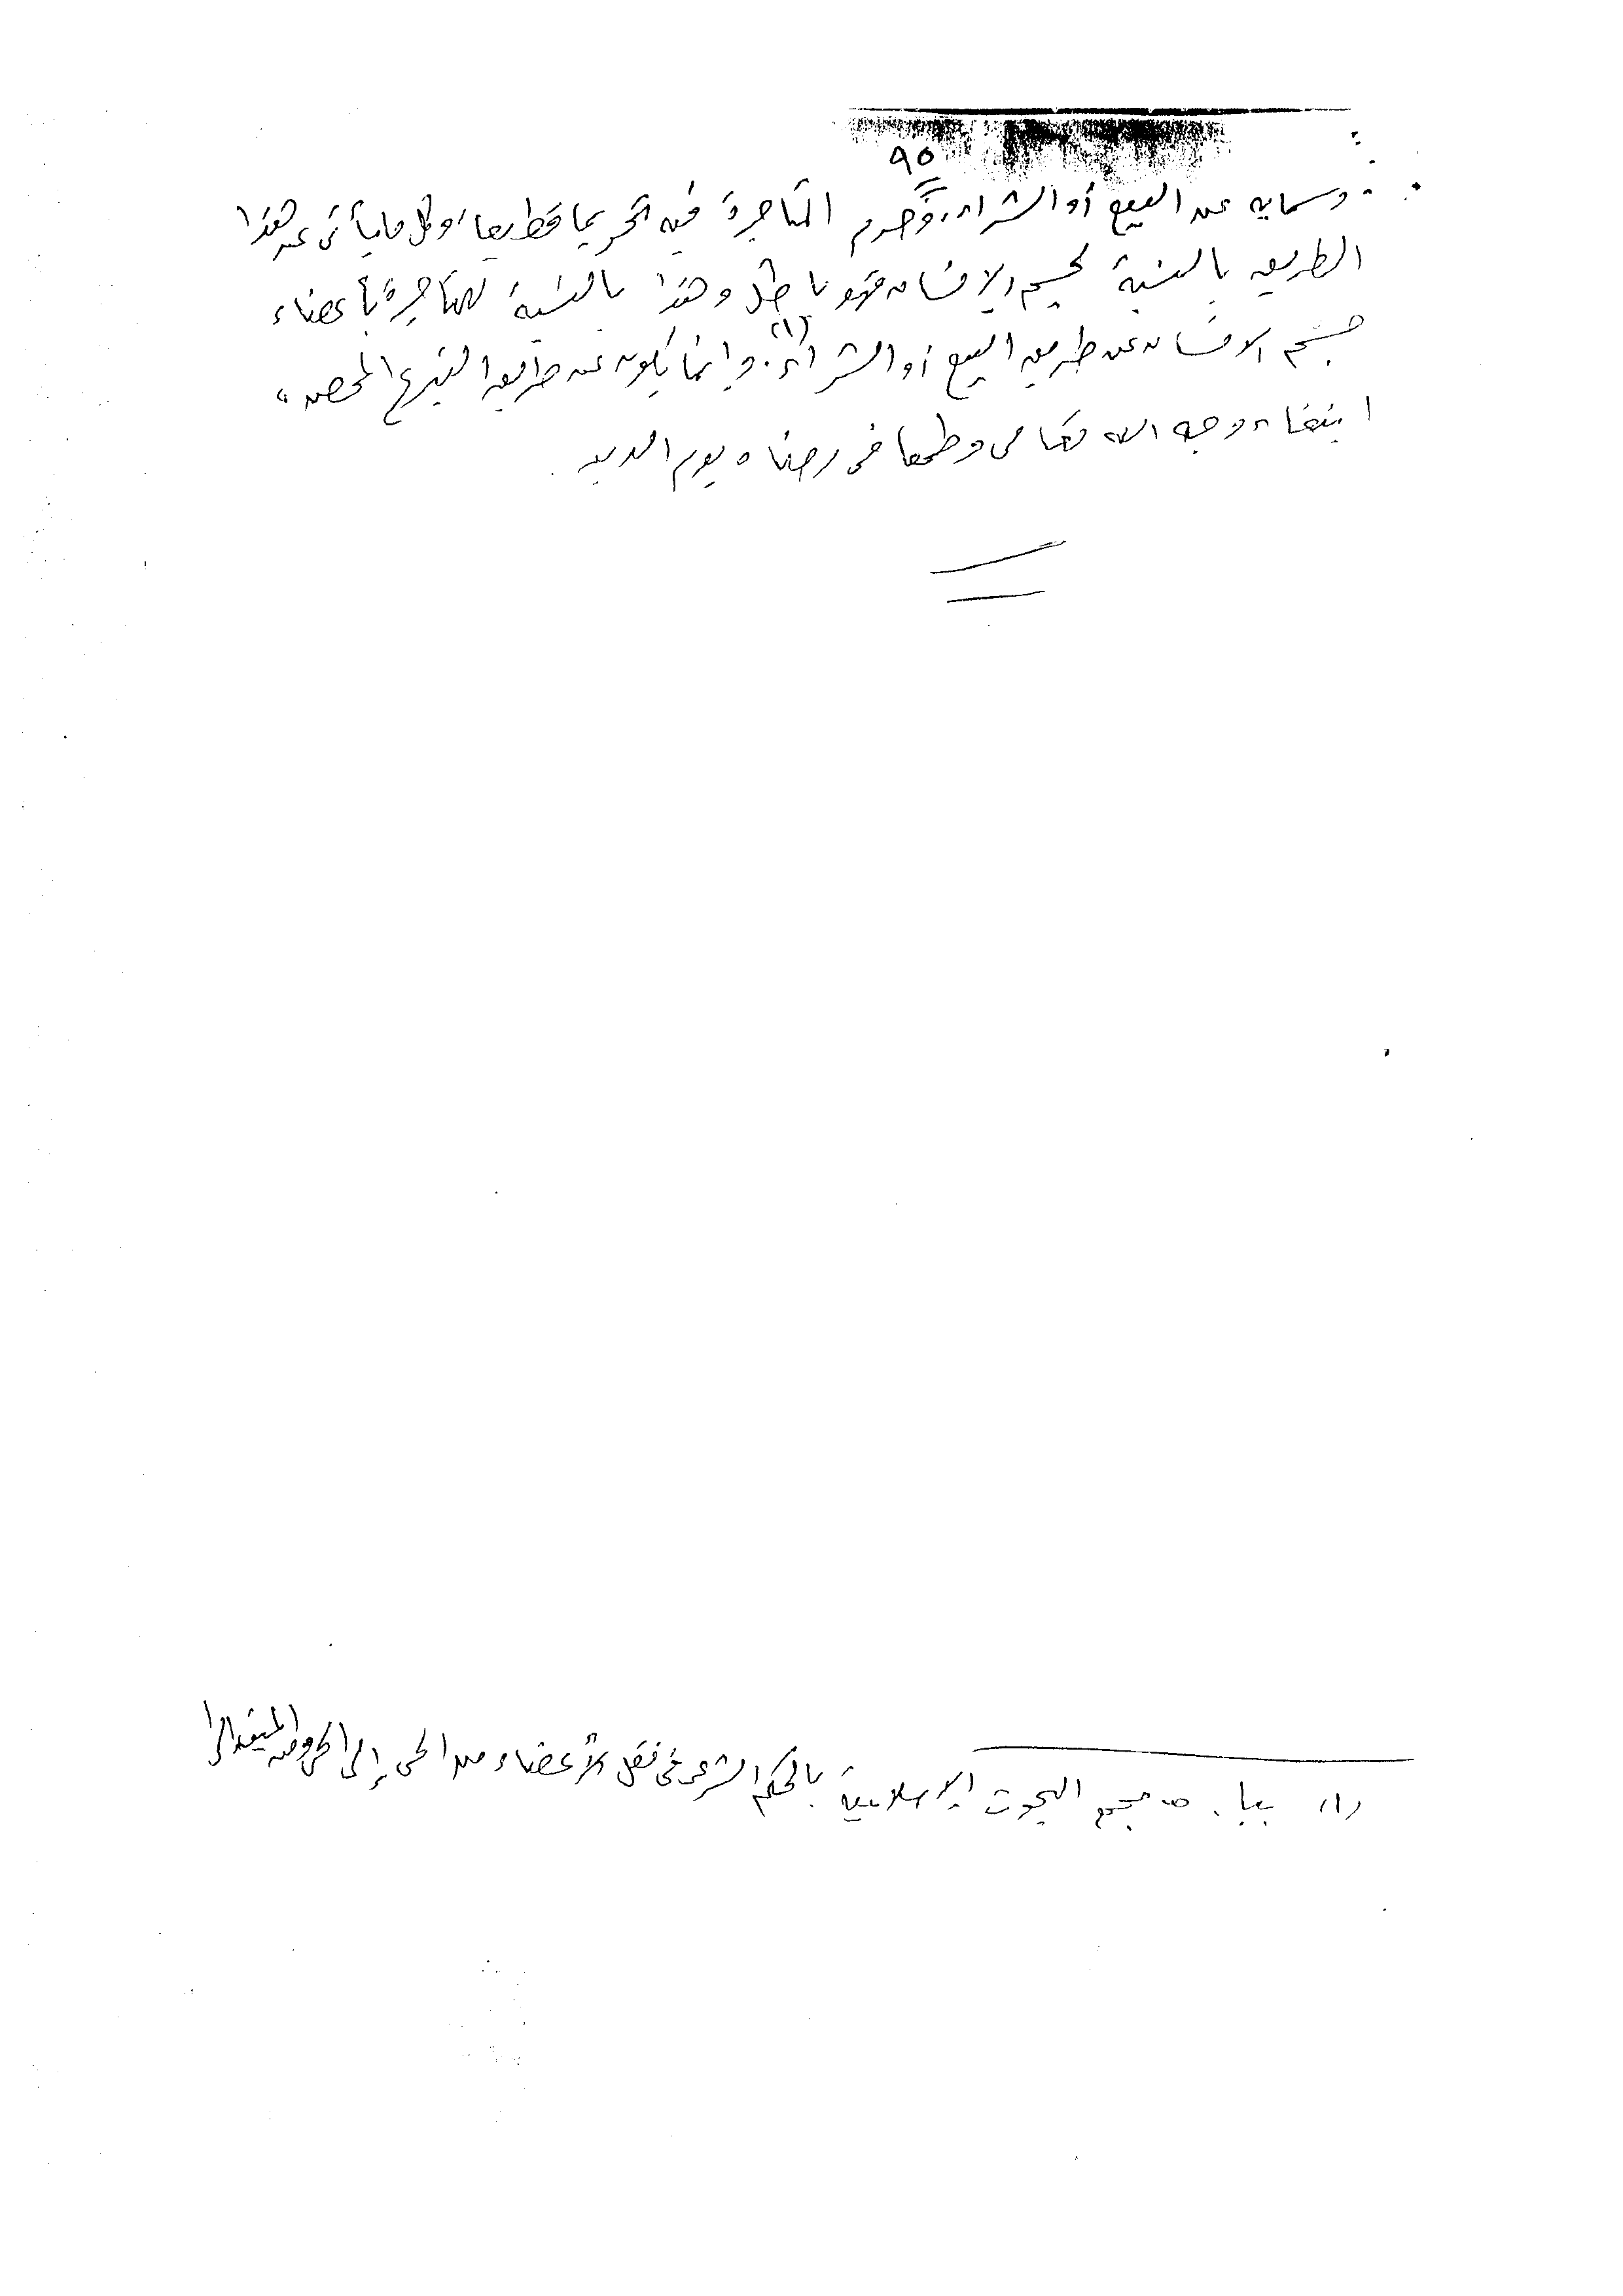 ٩٥
وسما به عن البيع أو الشراء، وحرم المتاجرة فيه تحريما قطيعا، وكل ما يأتى عن هذا
الطريق بالنسبة لجسم الإنسان فهو باطل وهذا بالنسبة للمتاجرة بأعضاء
جسم الانسان عن طريق البيع أو الشراء (١). وإنما يكون عن طريق التبرع المحض،
ابتغاء وجه الله تعالى وطمعا فى رضاه يوم الدين.
(١) بيان مجمع البحوث الإسلامية بالحكم الشرعى فى نقل الأعضاء من الحى إلى الحى ومن الميت إلى